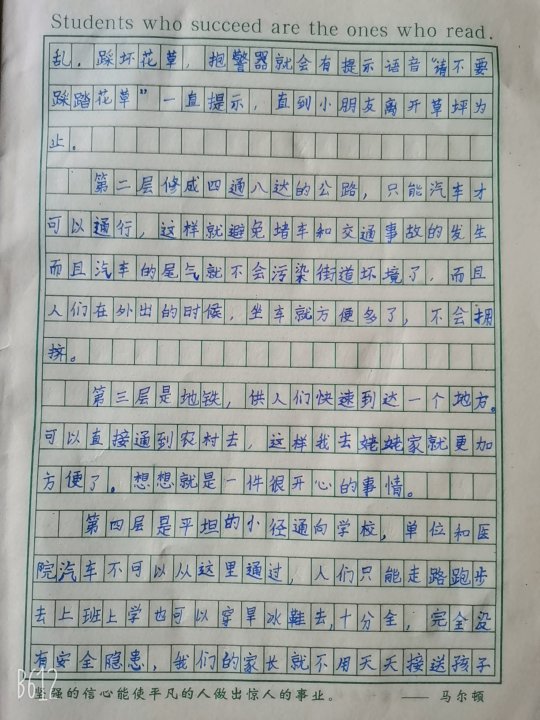 Students who succeed are the ones who read.
乱。踩坏花草，抱警器就会有提示语音“请不要
踩踏花草”一直提示，直到小朋友离开草坪为
止。
第二层修成四通八达的公路，只能汽车才
可以通行，这样就避免堵车和交通事故的发生
而且汽车的尾气就不会污染街道坏境了，而且
人们在外出的时候，坐车就方便多了，不会拥
挤。
第三层是地铁，供人们快速到达一个地方。
可以直接通到农村去，这样我去姥姥家就更加
方便了。想想就是一件很开心的事情。
第四层是平坦的小径通向学校，单位和医
院汽车不可以从这里通过，人们只能走路跑步
去上班上学也可以穿旱冰鞋去，十分全，完全没
有安全隐患，我们的家长就不用天天接送孩子
坚强的信心能使平凡的人做出惊人的事业。 —— 马尔顿
B612